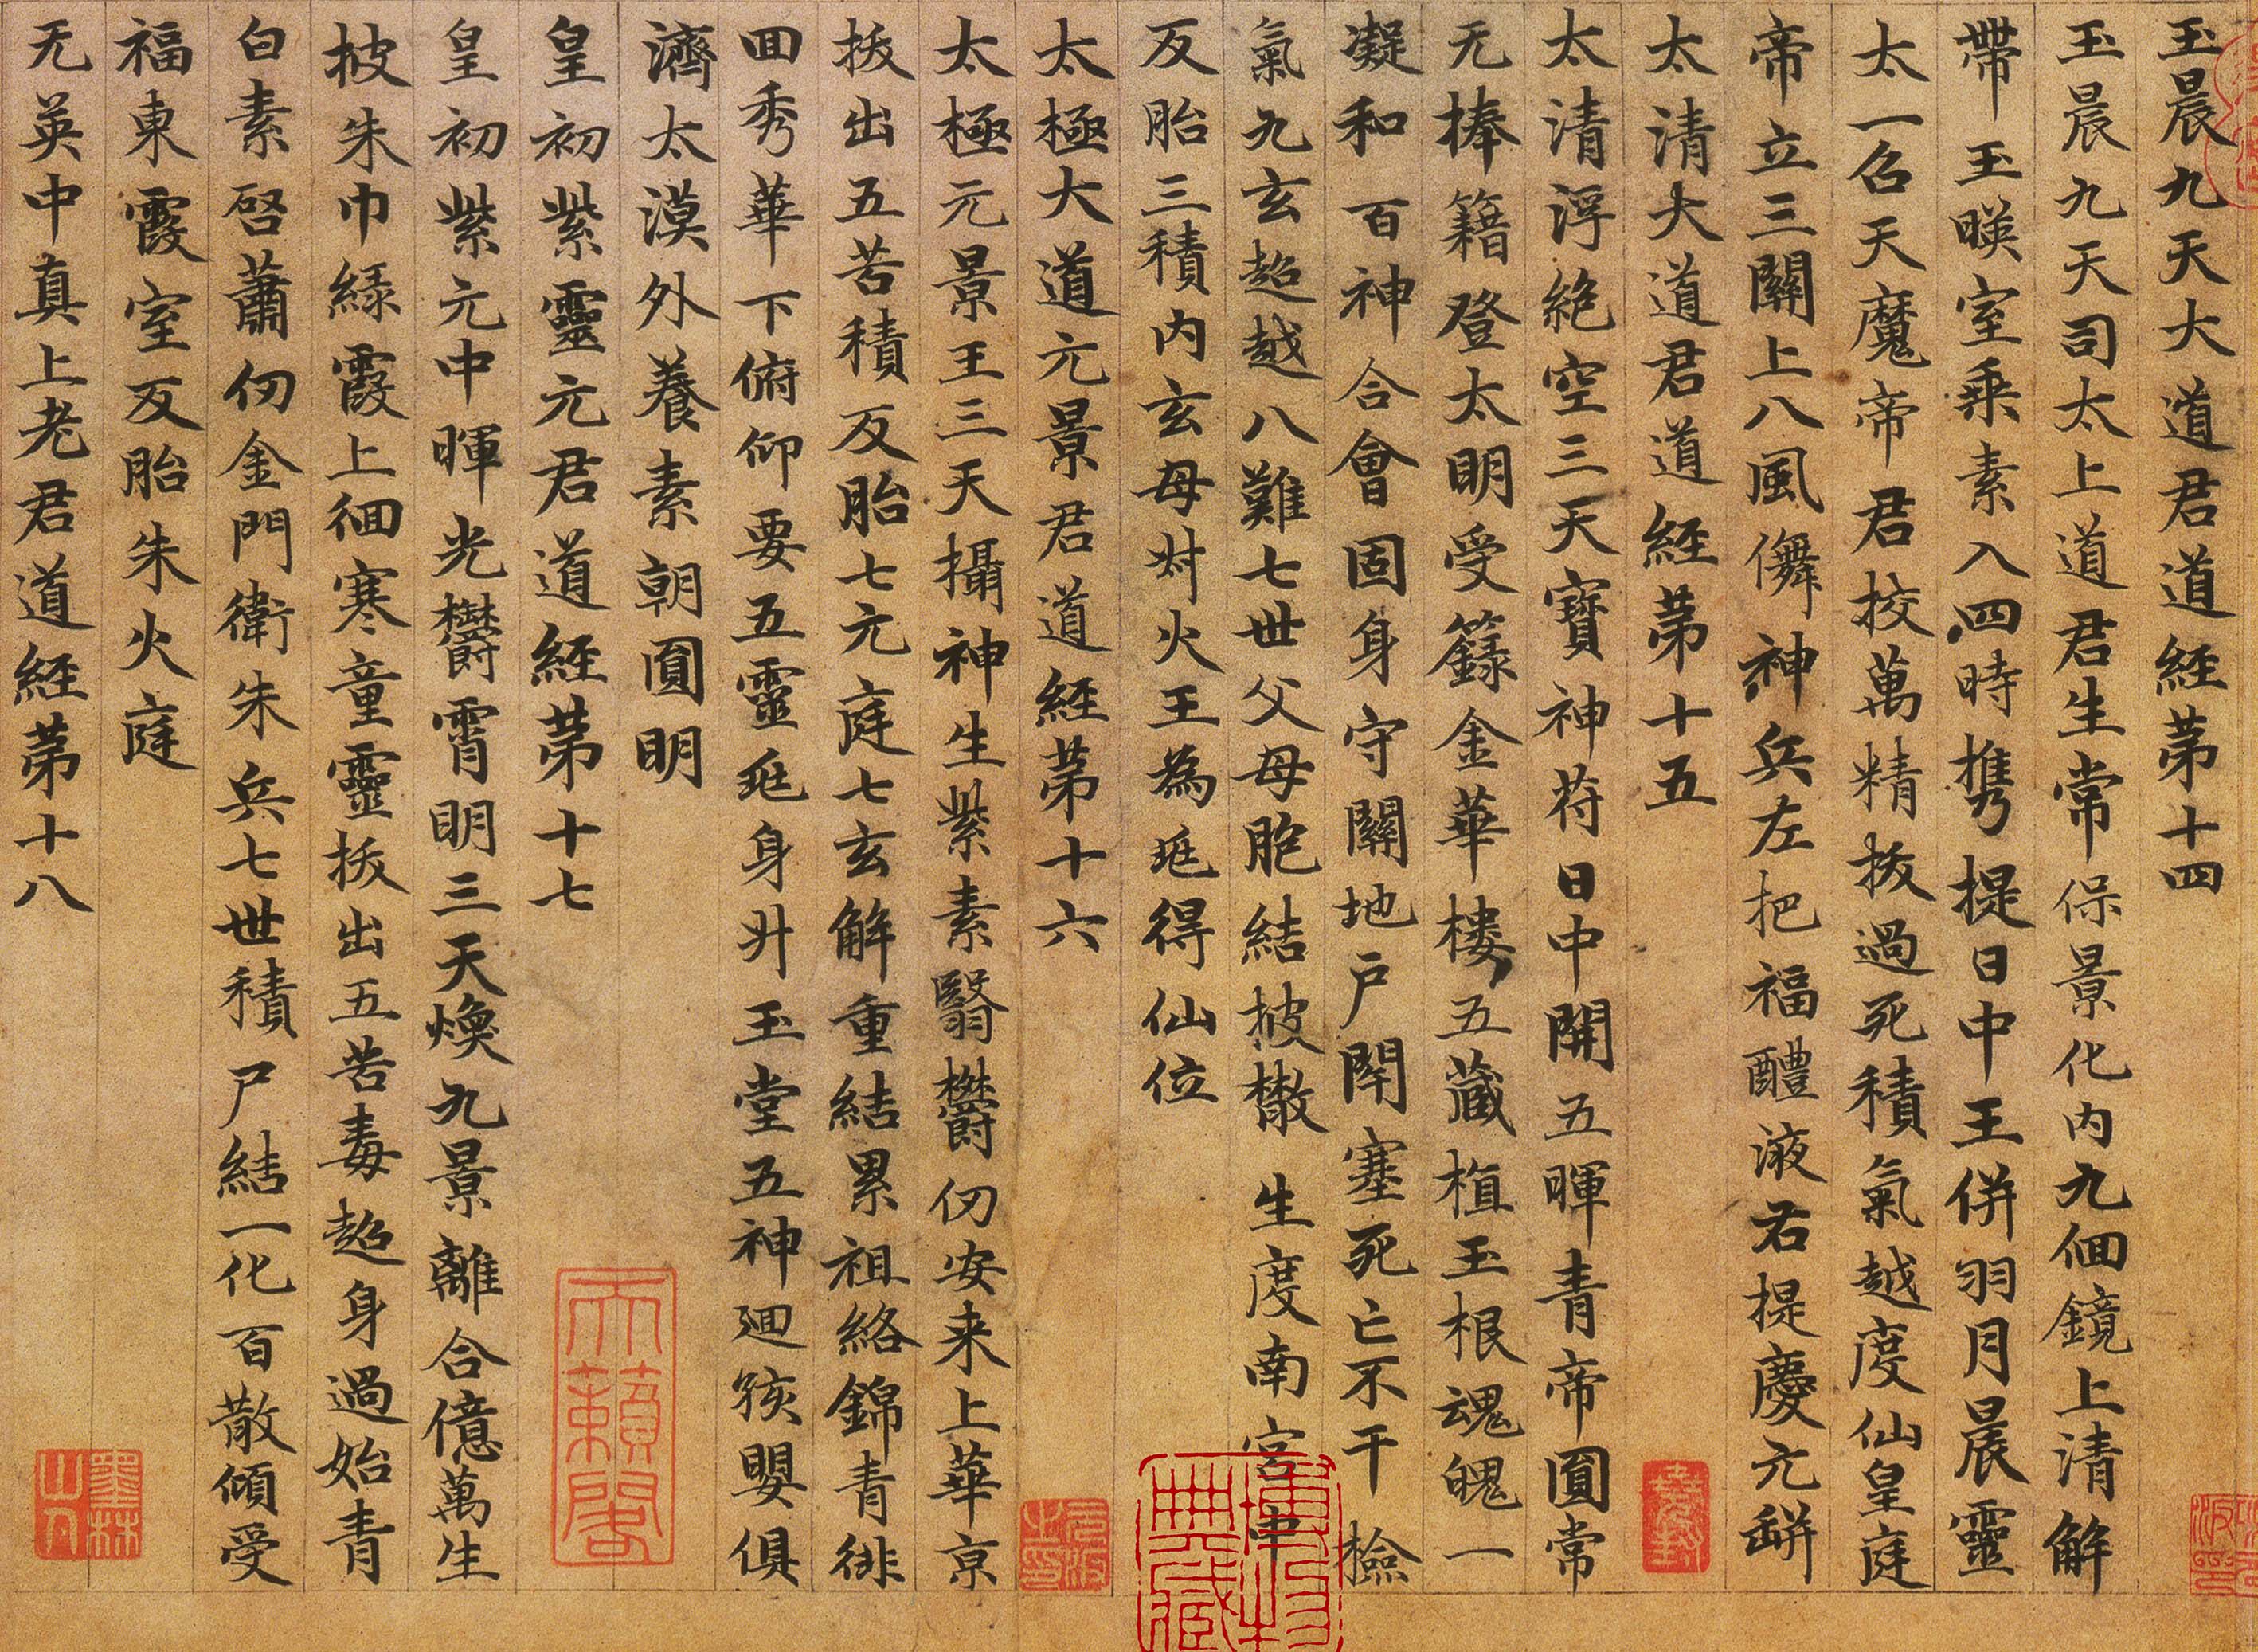 玉晨九天大道君道經第十四
玉晨九天司太上道君生常保景化内九佪鏡上清解
帶玉暎室乗素入四時携提日中王併羽月晨靈
太一召天魔帝君挍萬精拔過死積氣越度仙皇庭
帝立三關上八風儛神兵左把福醴液右提慶元缾
太清大道君道經第十五
太清浮絶空三天寶神苻日中開五暉青帝圓常
无捧籍登太明受籙金華樓五藏植玉根魂魄一
凝和百神合會固身守關地户閇塞死亡不干檢
氣九玄超越八難七世父母胞結披散生度南宮中
反胎三積内玄母對火王為延得仙位
太極大道元景君道經第十六
太極元景王三天攝神生紫素翳欝仞安来上華京
拔出五苦積反胎七元庭七玄解重結累祖絡錦青徘
佪秀華下俯仰要五靈延身升玉堂五神迴孩嬰俱
濟太漠外養素朝圓明
皇初紫靈元君道經第十七
皇初紫元中暉光欝霄明三天煥九景離合億萬生
披朱巾緑霞上佪寒童靈拔出五苦毒超身過始青
白素啓蕭仞金門衛朱兵七世積尸結一化百散傾受
福東霞室反胎朱火庭
无英中真上老君道經第十八
天籟閣
墨林山人
博物典藏